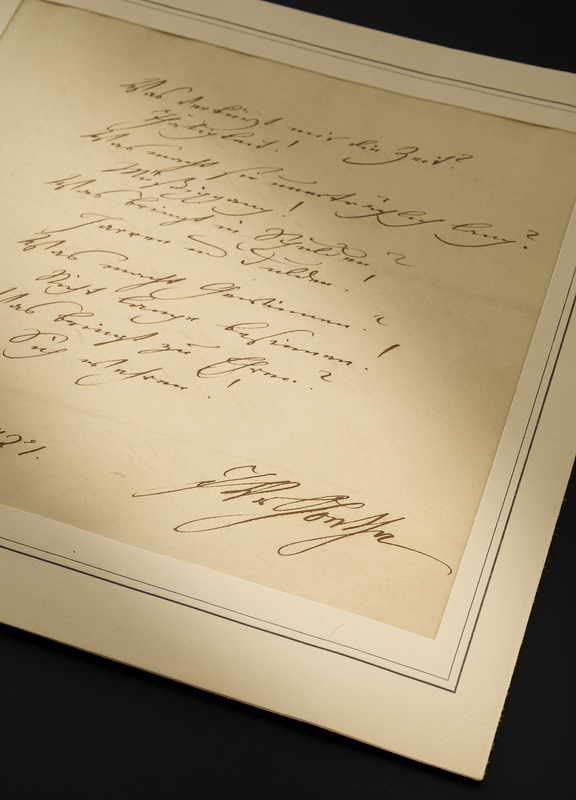 Was verkürzt mir die Zeit?
Thätigkeit!
Was macht sie unerträglich lang?
Müßiggang!
Was bringt in Schulden?
Harren und Dulden!
Was macht Gewinnen?
Nicht lange besinnen!
Was bringt zu Ehren?
Sich wehren!
JWvGoethe